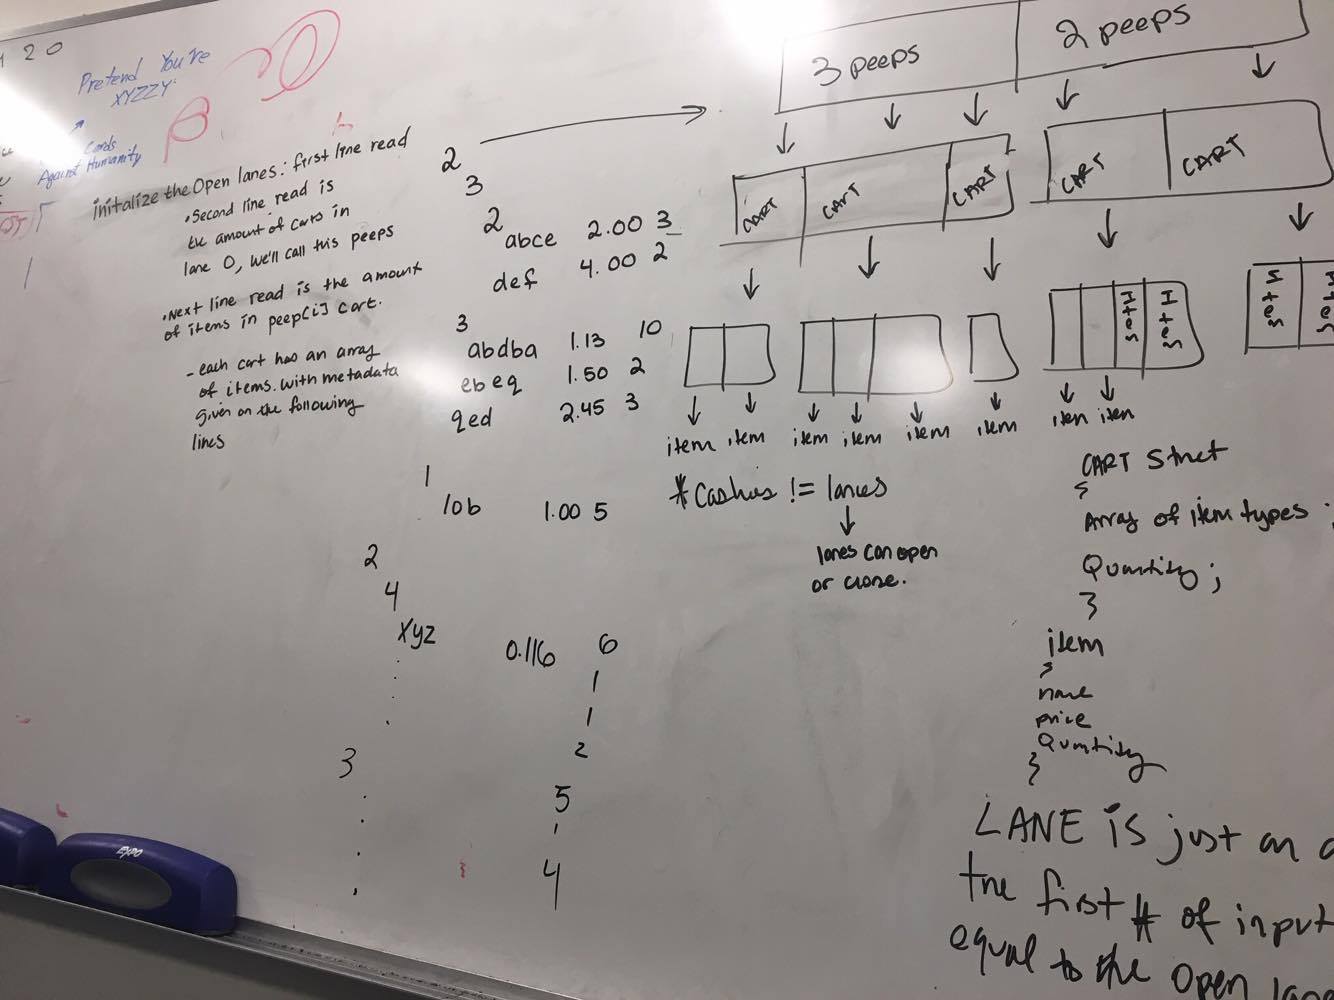 1 2 0
Pretend You're
XYZZY
Cards
Against Humanity
initalize the Open lanes: first line read
• Second line read is
the amount of carts in
lane 0, we'll call this peeps
• Next line read is the amount
of items in peep[i] cart.
- each cart has an array
of items. with metadata
given on the following
lines
2
3
2
abce 2.00 3
def 4.00 2
3
abdba 1.13 10
ebeq 1.50 2
qed 2.45 3
1
lob 1.00 5
2
4
xyz 0.116 6
1
1
2
3
5
1
4
3 peeps 2 peeps
CART CART CART CART CART
Item Item Item Item
item item item item item item item item
* Cashiers != lanes
lanes can open
or close.
CART Struct
{
Array of item types ;
Quantity ;
}
item
{
name
price
Quantity
}
LANE is just an
the first # of input
equal to the open
EXPO